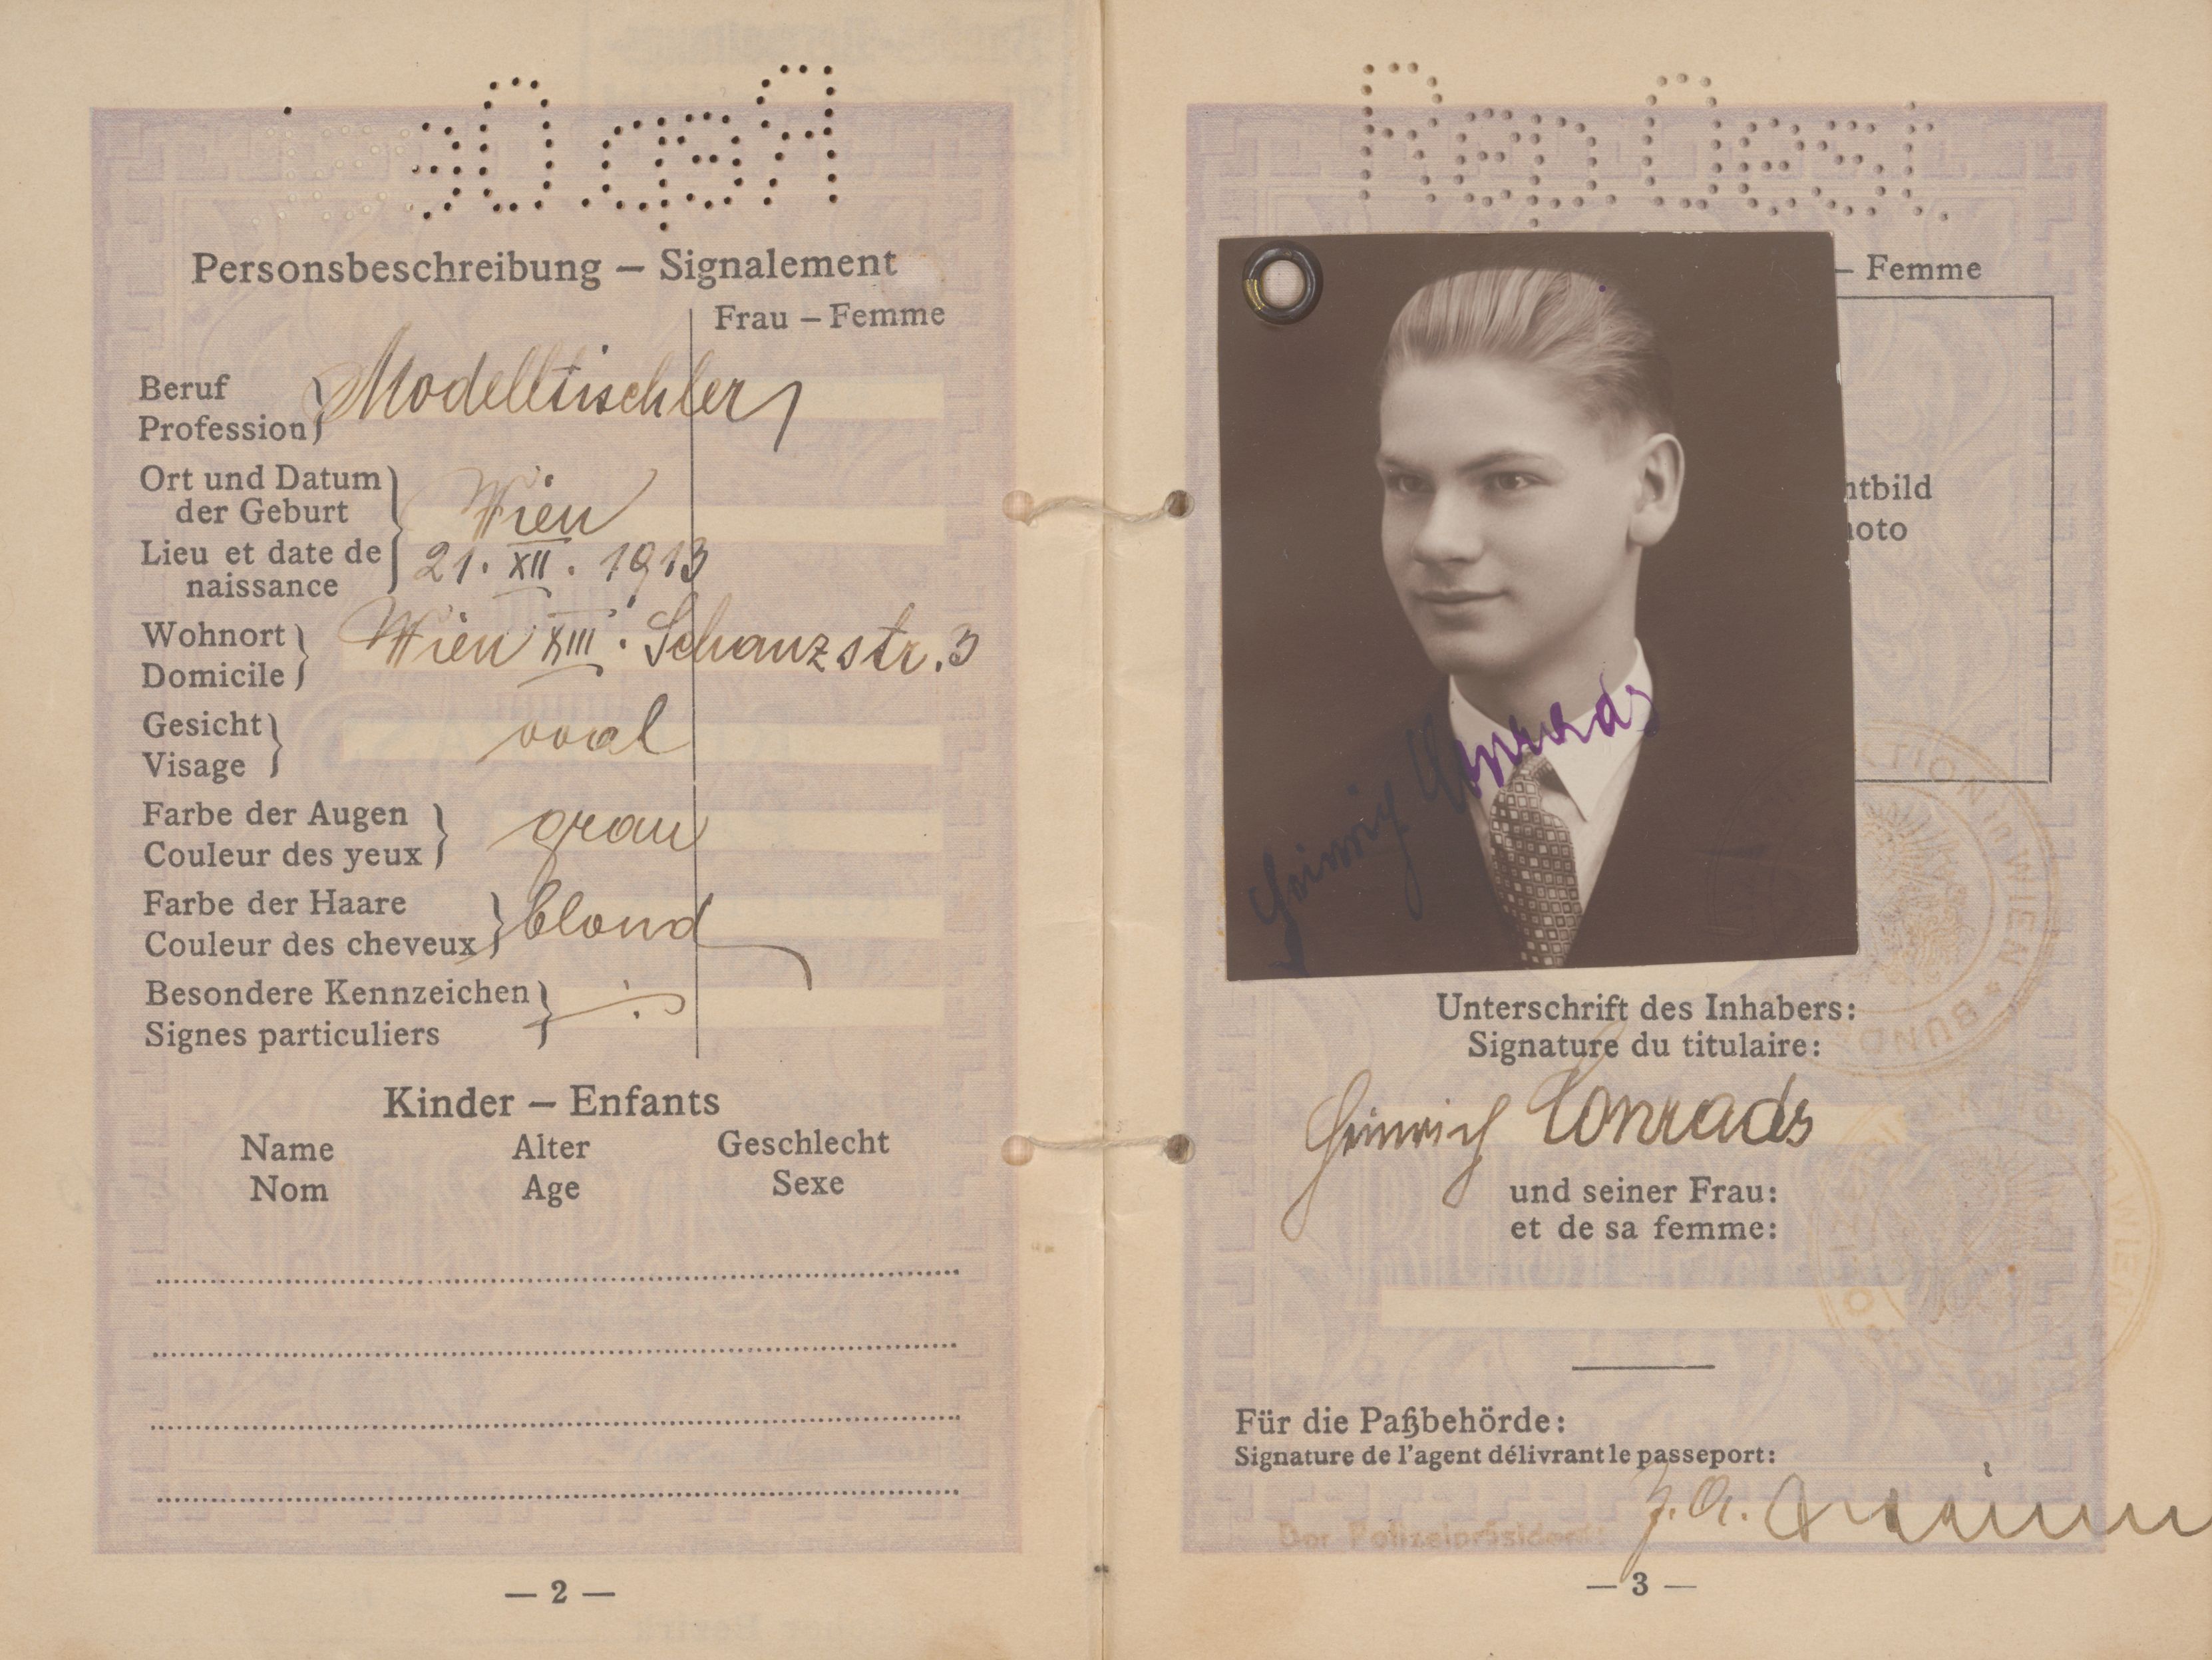 Rep. Oest.
Personsbeschreibung – Signalement
Frau – Femme
Beruf
Profession
Modelltischler
Ort und Datum
der Geburt
Lieu et date de
naissance
Wien
21. XII. 1913
Wohnort
Domicile
Wien XIII. Schanzstr. 3
Gesicht
Visage
oval
Farbe der Augen
Couleur des yeux
grau
Farbe der Haare
Couleur des cheveux
blond
Besondere Kennzeichen
Signes particuliers
Kinder – Enfants
Name Alter Geschlecht
Nom Age Sexe
— 2 —
Rep. Oest.
– Femme
htbild
hoto
Heinrich Conrads
Unterschrift des Inhabers:
Signature du titulaire:
Heinrich Conrads
und seiner Frau:
et de sa femme:
Für die Paßbehörde:
Signature de l'agent délivrant le passeport:
Der Polizeipräsident:
— 3 —